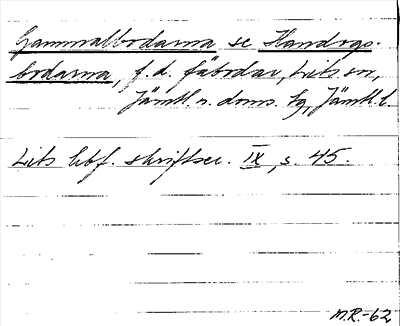 Gammalbodarna se Handogs-
bodarna, f.d. fäbodar, Lits sn,
Jämtl. n. doms. tg, Jämtl. l.
Lits hbf. skriftser. IX, s. 45.
M.R.-62